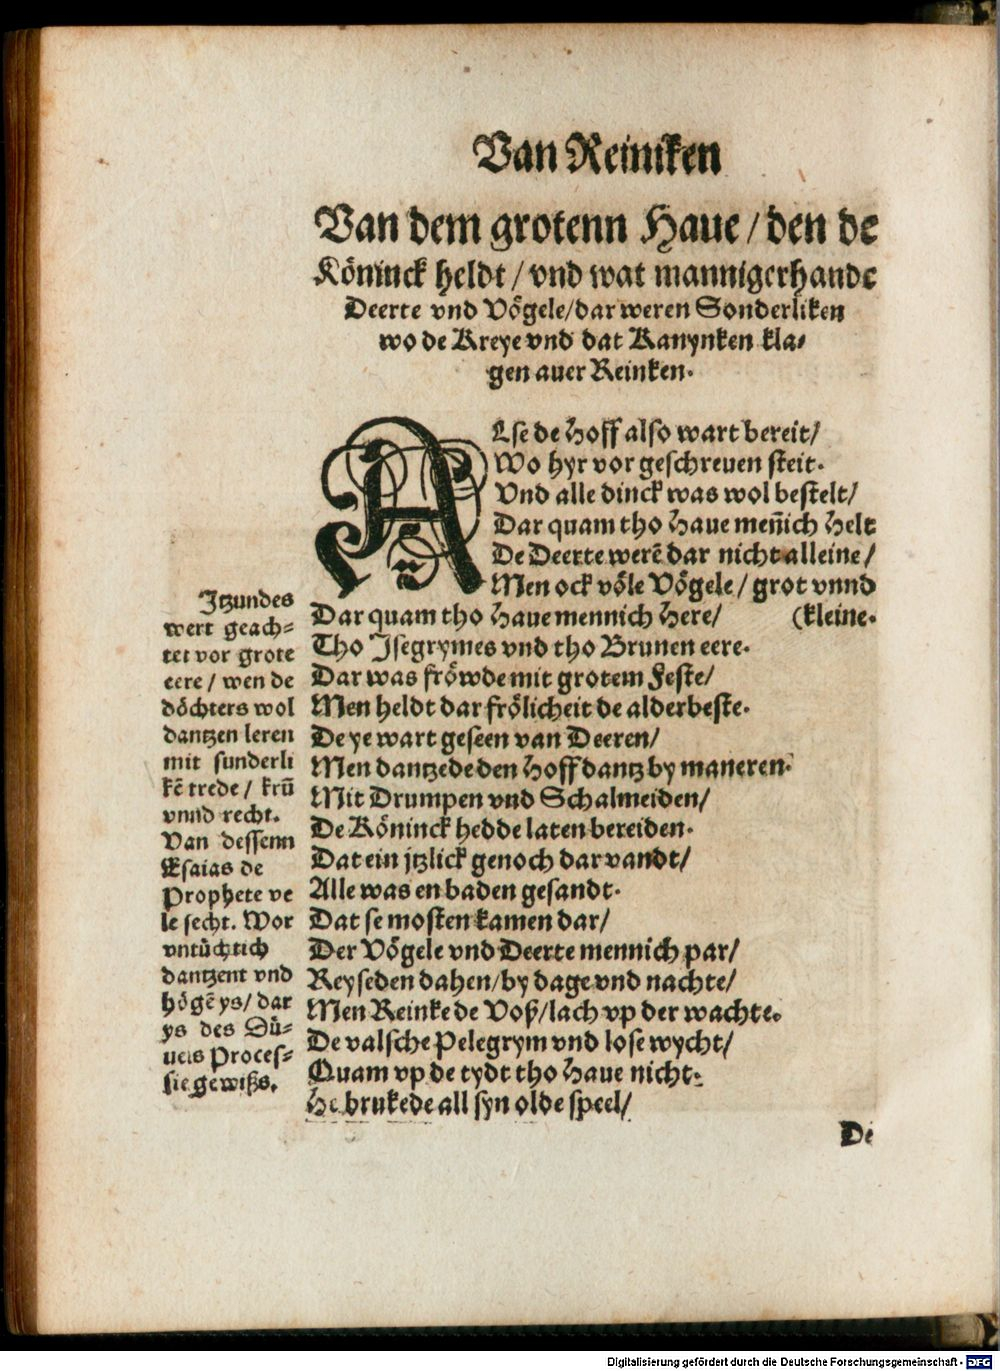 Van Reiniken
Van dem grotenn Haue / den de
Köninck heldt / vnd wat mannigerhande
Deerte vnd Vögele / dar weren Sonderliken
wo de Kreye vnd dat Kanynken kla-
gen auer Reinken.
ALse de Hoff also wart bereit /
Wo hyr vor geschreuen steit.
Vnd alle dinck was wol bestelt /
Dar quam tho Haue meñich Helt
De Deerte werẽ dar nicht alleine /
Men ock völe Vögele / grot vnnd
(kleine.
Dar quam tho Haue mennich Here /
Tho Isegrymes vnd tho Brunen eere.
Dar was fröwde mit grotem Feste /
Men heldt dar frölicheit de alderbeste.
De ye wart geseen van Deeren /
Men dantzede den Hoff dantz by maneren.
Mit Drumpen vnd Schalmeiden /
De Köninck hedde laten bereiden.
Dat ein jtzlick genoch dar vandt /
Alle was en baden gesandt.
Dat se mosten kamen dar /
Der Vögele vnd Deerte mennich par /
Reyseden dahen / by dage vnd nachte /
Men Reinke de Voß / lach vp der wachte.
De valsche Pelegrym vnd lose wycht /
Quam vp de tydt tho Haue nicht.
He brukede all syn olde speel /
De
Itzundes
wert geach-
tet vor grote
eere / wen de
döchters wol
dantzen leren
mit sunderli
kẽ trede / krũ
vnnd recht.
Van dessenn
Esaias de
Prophete ve
le secht. Wor
vntüchtich
dantzent vnd
högẽ ys / dar
ys des Dü-
uels Proces-
sie gewißs.
Digitalisierung gefördert durch die Deutsche Forschungsgemeinschaft - DFG